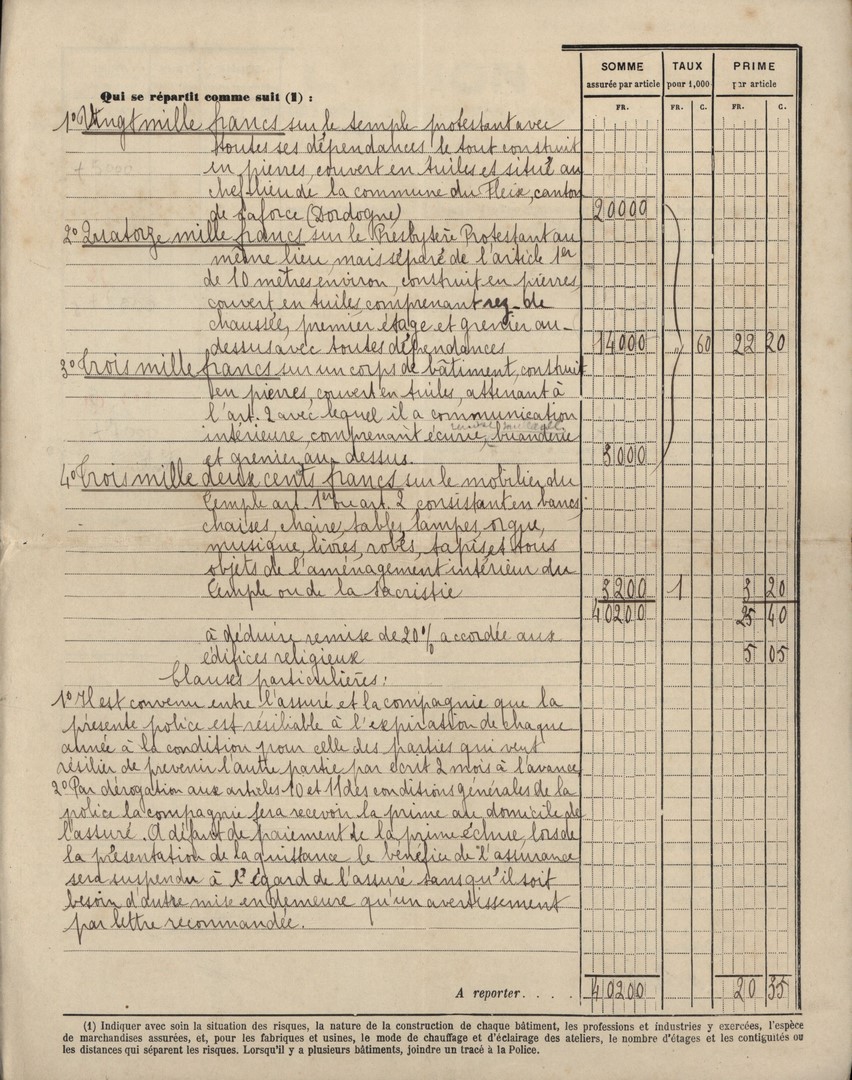 SOMME TAUX PRIME
assurée par article pour 1,000 par article
Qui se répartit comme suit (1) :
FR. FR. C. FR. C.
1º Vingt mille francs sur le temple protestant avec
toutes ses dépendances le tout construit
en pierres, couvert en tuiles et situé au
chef lieu de la commune du Fleix, canton
de Laforce (Dordogne) 20000
2º Quatorze mille francs sur le Presbytère Protestant au
même lieu, mais séparé de l'article 1er
de 10 mètres environ, construit en pierres,
couvert en tuiles, comprenant rez-de
chaussée, premier étage et grenier au-
dessus avec toutes dépendances 14000 60 22 20
3º Trois mille francs sur un corps de bâtiment, construit
en pierres, couvert en tuiles, attenant à
l'art. 2 avec lequel il a communication
intérieure, comprenant écurie, buanderie
et grenier au dessus. 3000
4º Trois mille deux cents francs sur le mobilier du
Temple art. 1er ou art. 2 consistant en bancs
chaises, chaire, tables, lampes, orgue,
musique, livres, robes, tapis et tous
objets de l'aménagement intérieur du
Temple ou de la sacristie 3200 1 3 20
40200 25 40
à déduire remise de 20% accordée aux
édifices religieux 5 05
Clauses particulières :
1º Il est convenu entre l'assuré et la compagnie que la
présente police est résiliable à l'expiration de chaque
année à la condition pour celle des parties qui veut
résilier de prevenir l'autre partie par écrit 2 mois à l'avance
2º Par dérogation aux articles 10 et 11 des conditions générales de la
police la compagnie fera recevoir la prime au domicile de
l'assuré. A défaut de paiement de la prime échue, lors de
la présentation de la quittance le bénéfice de l'assurance
sera suspendu à l'égard de l'assuré sans qu'il soit
besoin d'autre mise en demeure qu'un avertissement
par lettre recommandée.
A reporter. . . . 40200 20 35
(1) Indiquer avec soin la situation des risques, la nature de la construction de chaque bâtiment, les professions et industries y exercées, l'espèce
de marchandises assurées, et, pour les fabriques et usines, le mode de chauffage et d'éclairage des ateliers, le nombre d'étages et les contiguïtés ou
les distances qui séparent les risques. Lorsqu'il y a plusieurs bâtiments, joindre un tracé à la Police.